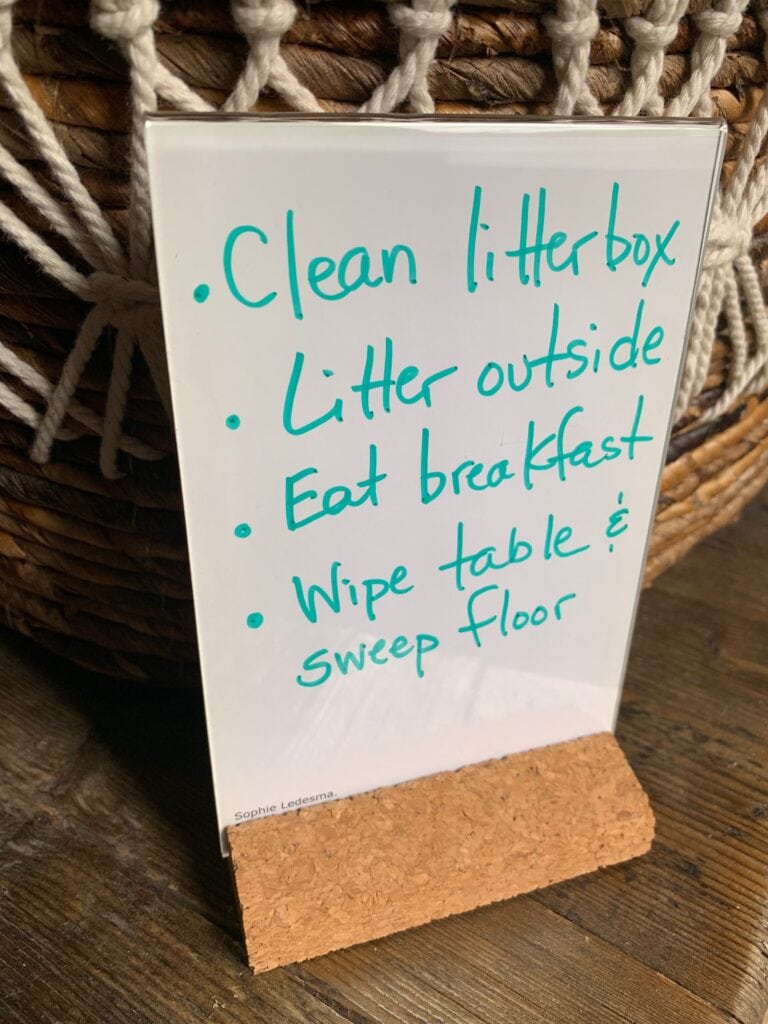 • Clean litterbox
• Litter outside
• Eat breakfast
• Wipe table &
sweep floor
Sophie Ledesma.